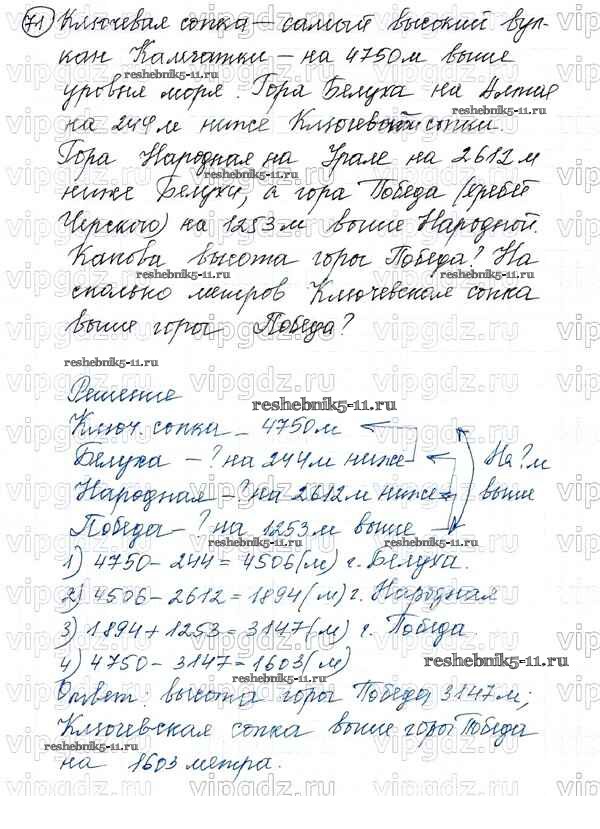 71) Ключевая сопка – самый высокий вул-
кан Камчатки – на 4750 м выше
reshebnik5-11.ru
уровня моря. Гора Белуха на Алтае
reshebnik5-11.ru
на 244 м ниже Ключевской сопки.
Гора Народная на Урале на 2612 м
ниже Белухи, а гора Победа (хребет
Черского) на 1253 м выше Народной.
Какова высота горы Победа? На
reshebnik5-11.ru
сколько метров Ключевская сопка
выше горы Победа?
reshebnik5-11.ru
Решение
reshebnik5-11.ru
Ключ. сопки – 4750 м
Белуха – ? на 244 м ниже
На ? м
Народная – ? на 2612 м ниже
выше
Победа – ? на 1253 м выше
reshebnik5-11.ru
1) 4750 – 244 = 4506 (м) г. Белуха.
2) 4506 – 2612 = 1894 (м) г. Народная
3) 1894 + 1253 = 3147 (м) г. Победа.
4) 4750 – 3147 = 1603 (м)
reshebnik5-11.ru
Ответ: высота горы Победа 3147 м;
Ключевская сопка выше горы Победа
reshebnik5-11.ru
на 1603 метра.
vipgdz.ru